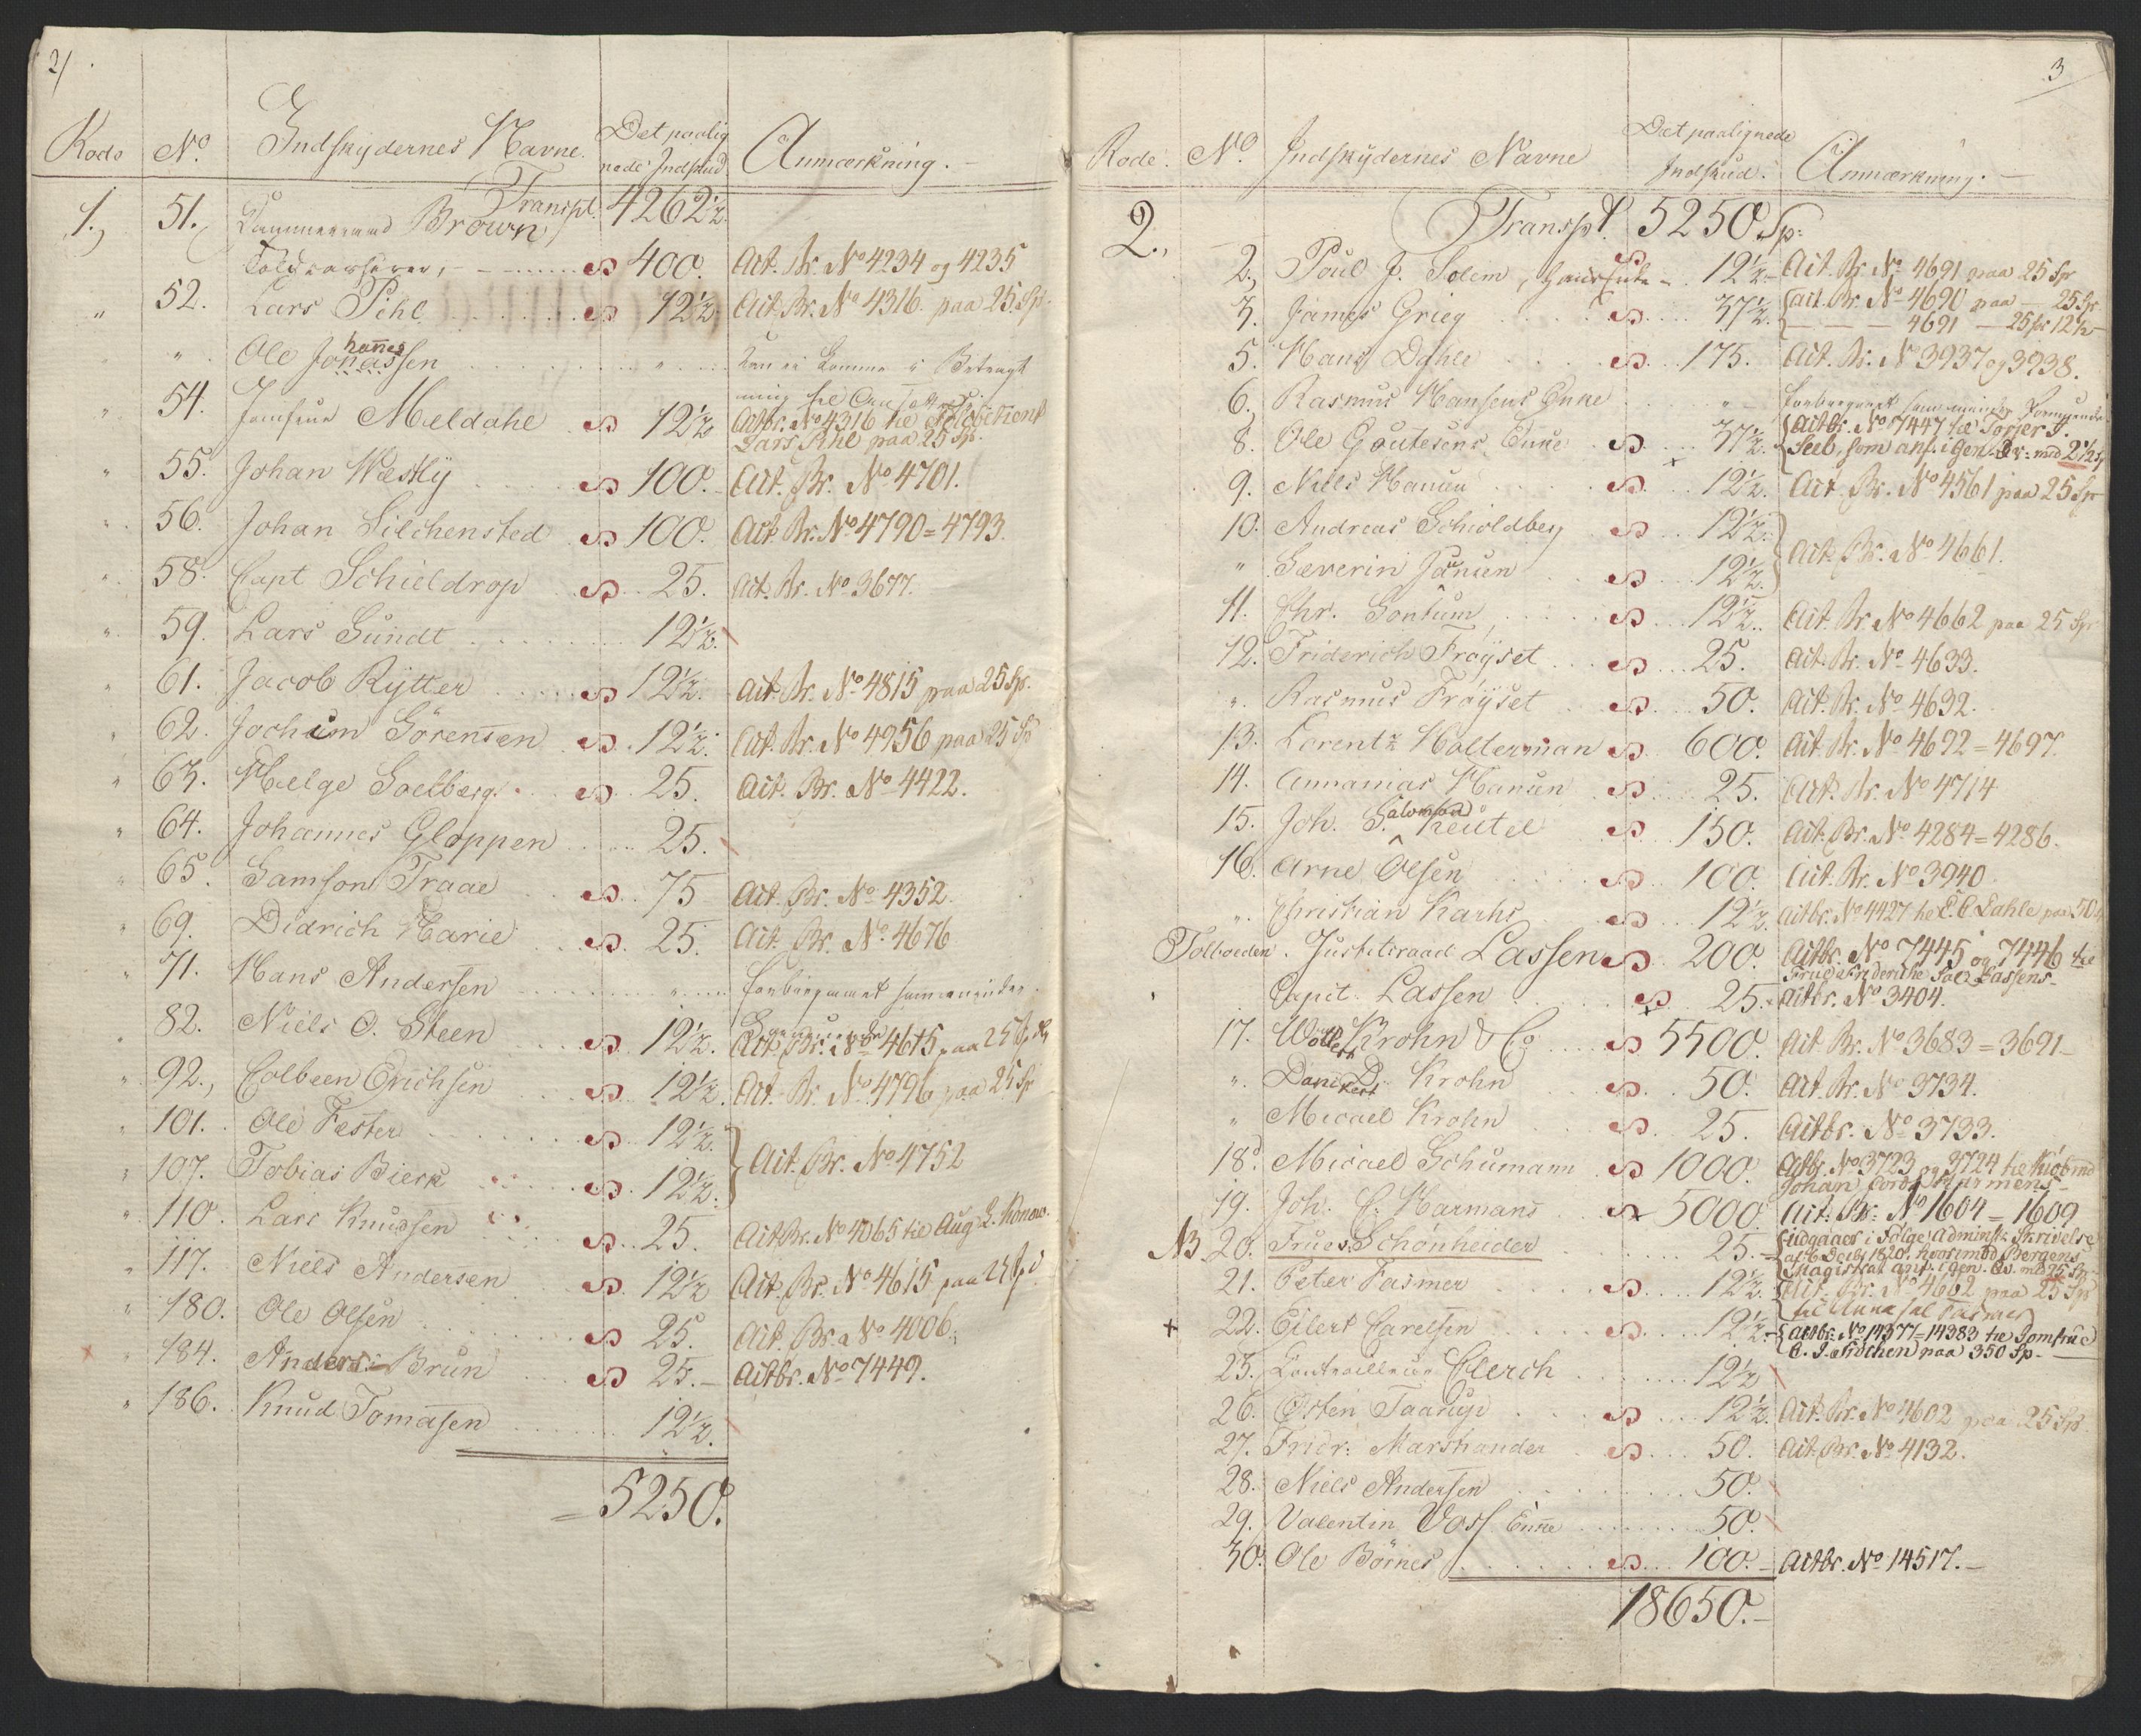 2/
Rode No. Indskydernes Navne. Det paalig
nede Indskud. Anmærkning.
Transpt. 4262½
1. 51. Kammerraad Brown
Toldkasserer, 400. Act. Br. No 4234 og 4235
" 52. Lars Pihl 12½ Act. Br. No 4316. paa 25. Sp.
" Ole Jonassen hannes " Kan ei komme i Betragt
ning til
" 54. Jomfrue Meldahl 12½ Actbr. No 4316 til
Lars Pihl paa 25 Sp.
" 55. Johan Westly 100. Act. Br. No 4701.
" 56. Johan Silchensted 100. Act. Br. No 4790=4793.
" 58. Capt Schieldrop 25. Act. Br. No 3677.
" 59. Lars Sundt 12½
" 61. Jacob Rytter 12½ Act. Br. No 4815 paa 25 Sp.
" 62. Jochum Sörensen 12½ Act. Br. No 4956 paa 25 Sp
" 63. Helge Soelberg 25. Act. Br. No 4422.
" 64. Johannes Gloppen 25.
" 65. Samson Traae 75 Act. Br. No 4352.
" 69. Didrich Harie 25. Act. Br. No 4676
" 71. Hans Andersen " forbigaaet
82. Niels O. Steen 12½. Act. Br. No 4615 paa 25 Sp
" 92., Colbeen Erichsen 12½. Act. Br. No 4796 paa 25 Sp
" 101. Ole Fester 12½
" 107. Tobias Bierk 12½ Act. Br. No 4752
" 110. Lars Knudsen 25. Act. Br. No 4065 til Aug L. Konow.
" 117. Niels Andersen 12½ Act. Br. No 4615 paa 25 Sp
" 180. Ole Olsen 25. Act. Br. No 4006.
" 184. Anders Brun 25.— Actbr. No 7449.
" 186. Knud Tomasen 12½.
5250.
3
Rode. No. Indskydernes Navne Det paalignede
Indskud. Anmærkning.
2., Transpt. 5250 Sp.
2., Poul J. Solem, 12½ Act. Br. No 4691 paa 25 Sp
3. James Grieg 37½ Act. Br. No 4690 paa — 25 Sp
— — 4691 — 25 Sp 12½
5. Hans Dahle 175. Act. Br. No 3937 og 3938.
6. Rasmus Hansens Enke " forbigaaet
8. Ole Goutesens Enke 37½. Actbr. No 7447 til Torjer T.
Seeb, som anf. i Gen. Qv: med 2½ Sp
9. Niels Hansen 12½. Act. Br. No 4561 paa 25 Sp
10. Andreas Schioldberg 12½.
" Severin Jansen 12½. Act. Br. No 4661.
11. Chr. Sontum 12½. Act. Br. No 4662 paa 25 Sp
12. Friderich Fröyset 25. Act. Br. No 4633.
". Rasmus Fröyset 50. Act. Br. No 4632.
13. Lorentz Holterman 600. Act. Br. No 4692=4697.
14. Annanias Hansen 25. Act. Br. No 4714
15. Joh. Salomon Keutel 150. Act. Br. No 4284=4286.
16. Arne Olsen 100. Act. Br. No 3940
". Christian Karhs 12½. Actbr. No 4427 til C. C. Dahle paa 50
Tolboeden. Justitsraad Lassen 200. Actbr. No 7445 og 7446 til
Frue Frideriche Sal. Lassens
Capit. Lassen 25. Actbr. No 3404.
17. Wollert Krohn & Co 5500. Act. Br. No 3683=3691
". Danckert D. Krohn 50. Act. Br. No 3734.
" Micael Krohn 25. Actbr. No 3733.
18. Micael Schumann 1000. Actbr. No 3723 og 3724 til Kiöbmd
Johan Cord
19. Joh. C. Harmans 5000. Act. Br. No 1604=1609
NB 20. Frue Schönheider 25. udgaaer i Fölge Administ. Skrivelse
af 6 Decbr 1820, hvorimod Bergens
Magistrat anf. i Gen. Qv. md 25 Sp.
21. Peter Fasmer 12½. Act. Br. No 4662 paa 25 Sp
til Anna sal Fasmer
+ 22. Eilert Carelsen 12½. Actbr. No 14377=14383 til Jomfrue
C. J. Fidchen paa 350 Sp.
23. Controlleur Clerch 12½
26. Östen Taarup 12½. Act. Br. No 4602 paa 25 Sp
27. Fridr: Marstrander 50. Act. Br. No 4132.
28. Niels Andersen 50.
29. Valentin Voss Enke 50.
30. Ole Börnes 100. Actbr. No 14517.
18650.